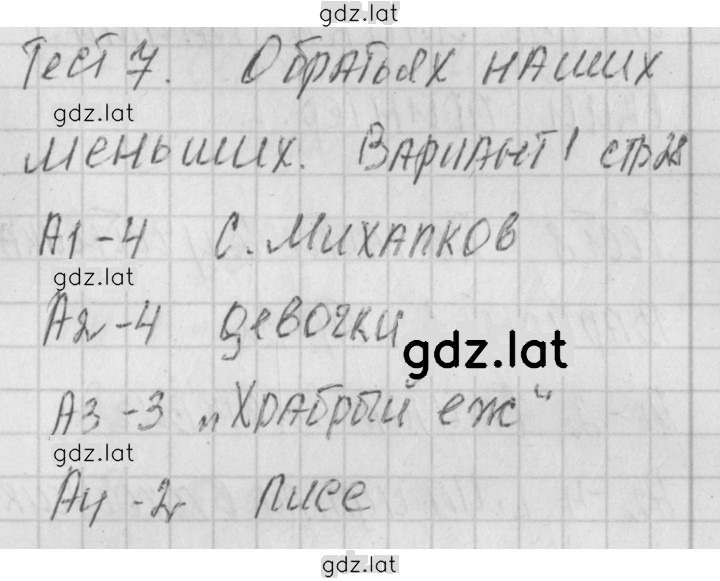 gdz.lat
Тест 7. О братьях наших
gdz.lat
меньших. Вариант 1 стр 28
А1-4 С. Михалков
gdz.lat
А2-4 девочки
gdz.lat
А3-3 „Храбрый ёж“
gdz.lat
А4-2 лисе
gdz.lat